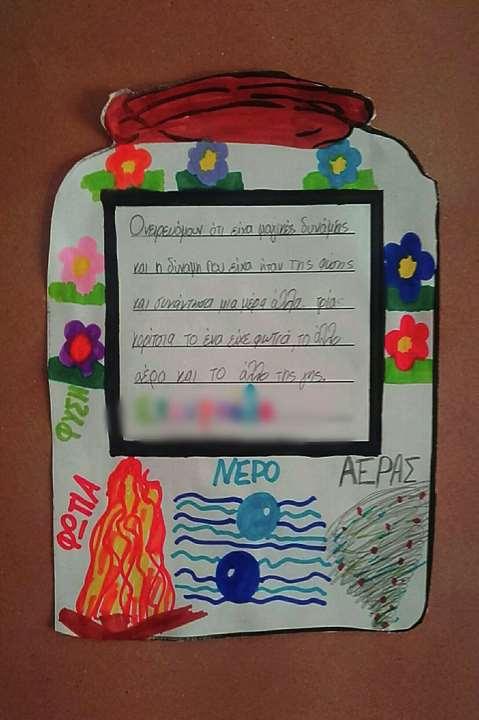 Ονειρευόμουν ότι είχα μαγικές δυνάμης
και η δύναμη που είχα ήταν της φύσης
και συνάντησα μια μέρα άλλα τρία
κορίτσια το ένα είχε φωτιά, το άλλο
αέρα και το άλλο της γης.
ΦΥΣΗ
ΦΩΤΙΑ
ΝΕΡΟ
ΑΕΡΑΣ